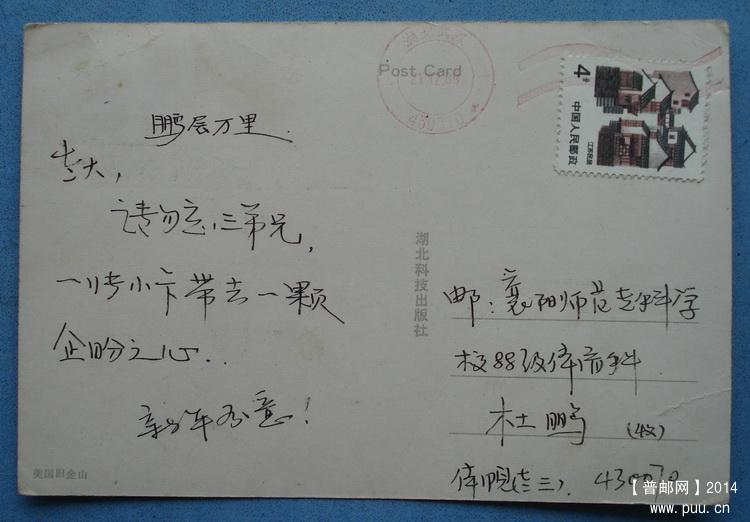 Post Card
430070
4分
中国人民邮政
江苏民居
鹏层万里
老大,
请勿忘三弟兄,
小卡带去一颗
企盼之心..
新年如意!
湖北科技出版社
邮：襄阳师范专科学
校88级体育科
杜鹏 (收)
体院(老三). 430070
美国旧金山
【普邮网】2014
www.puu.cn